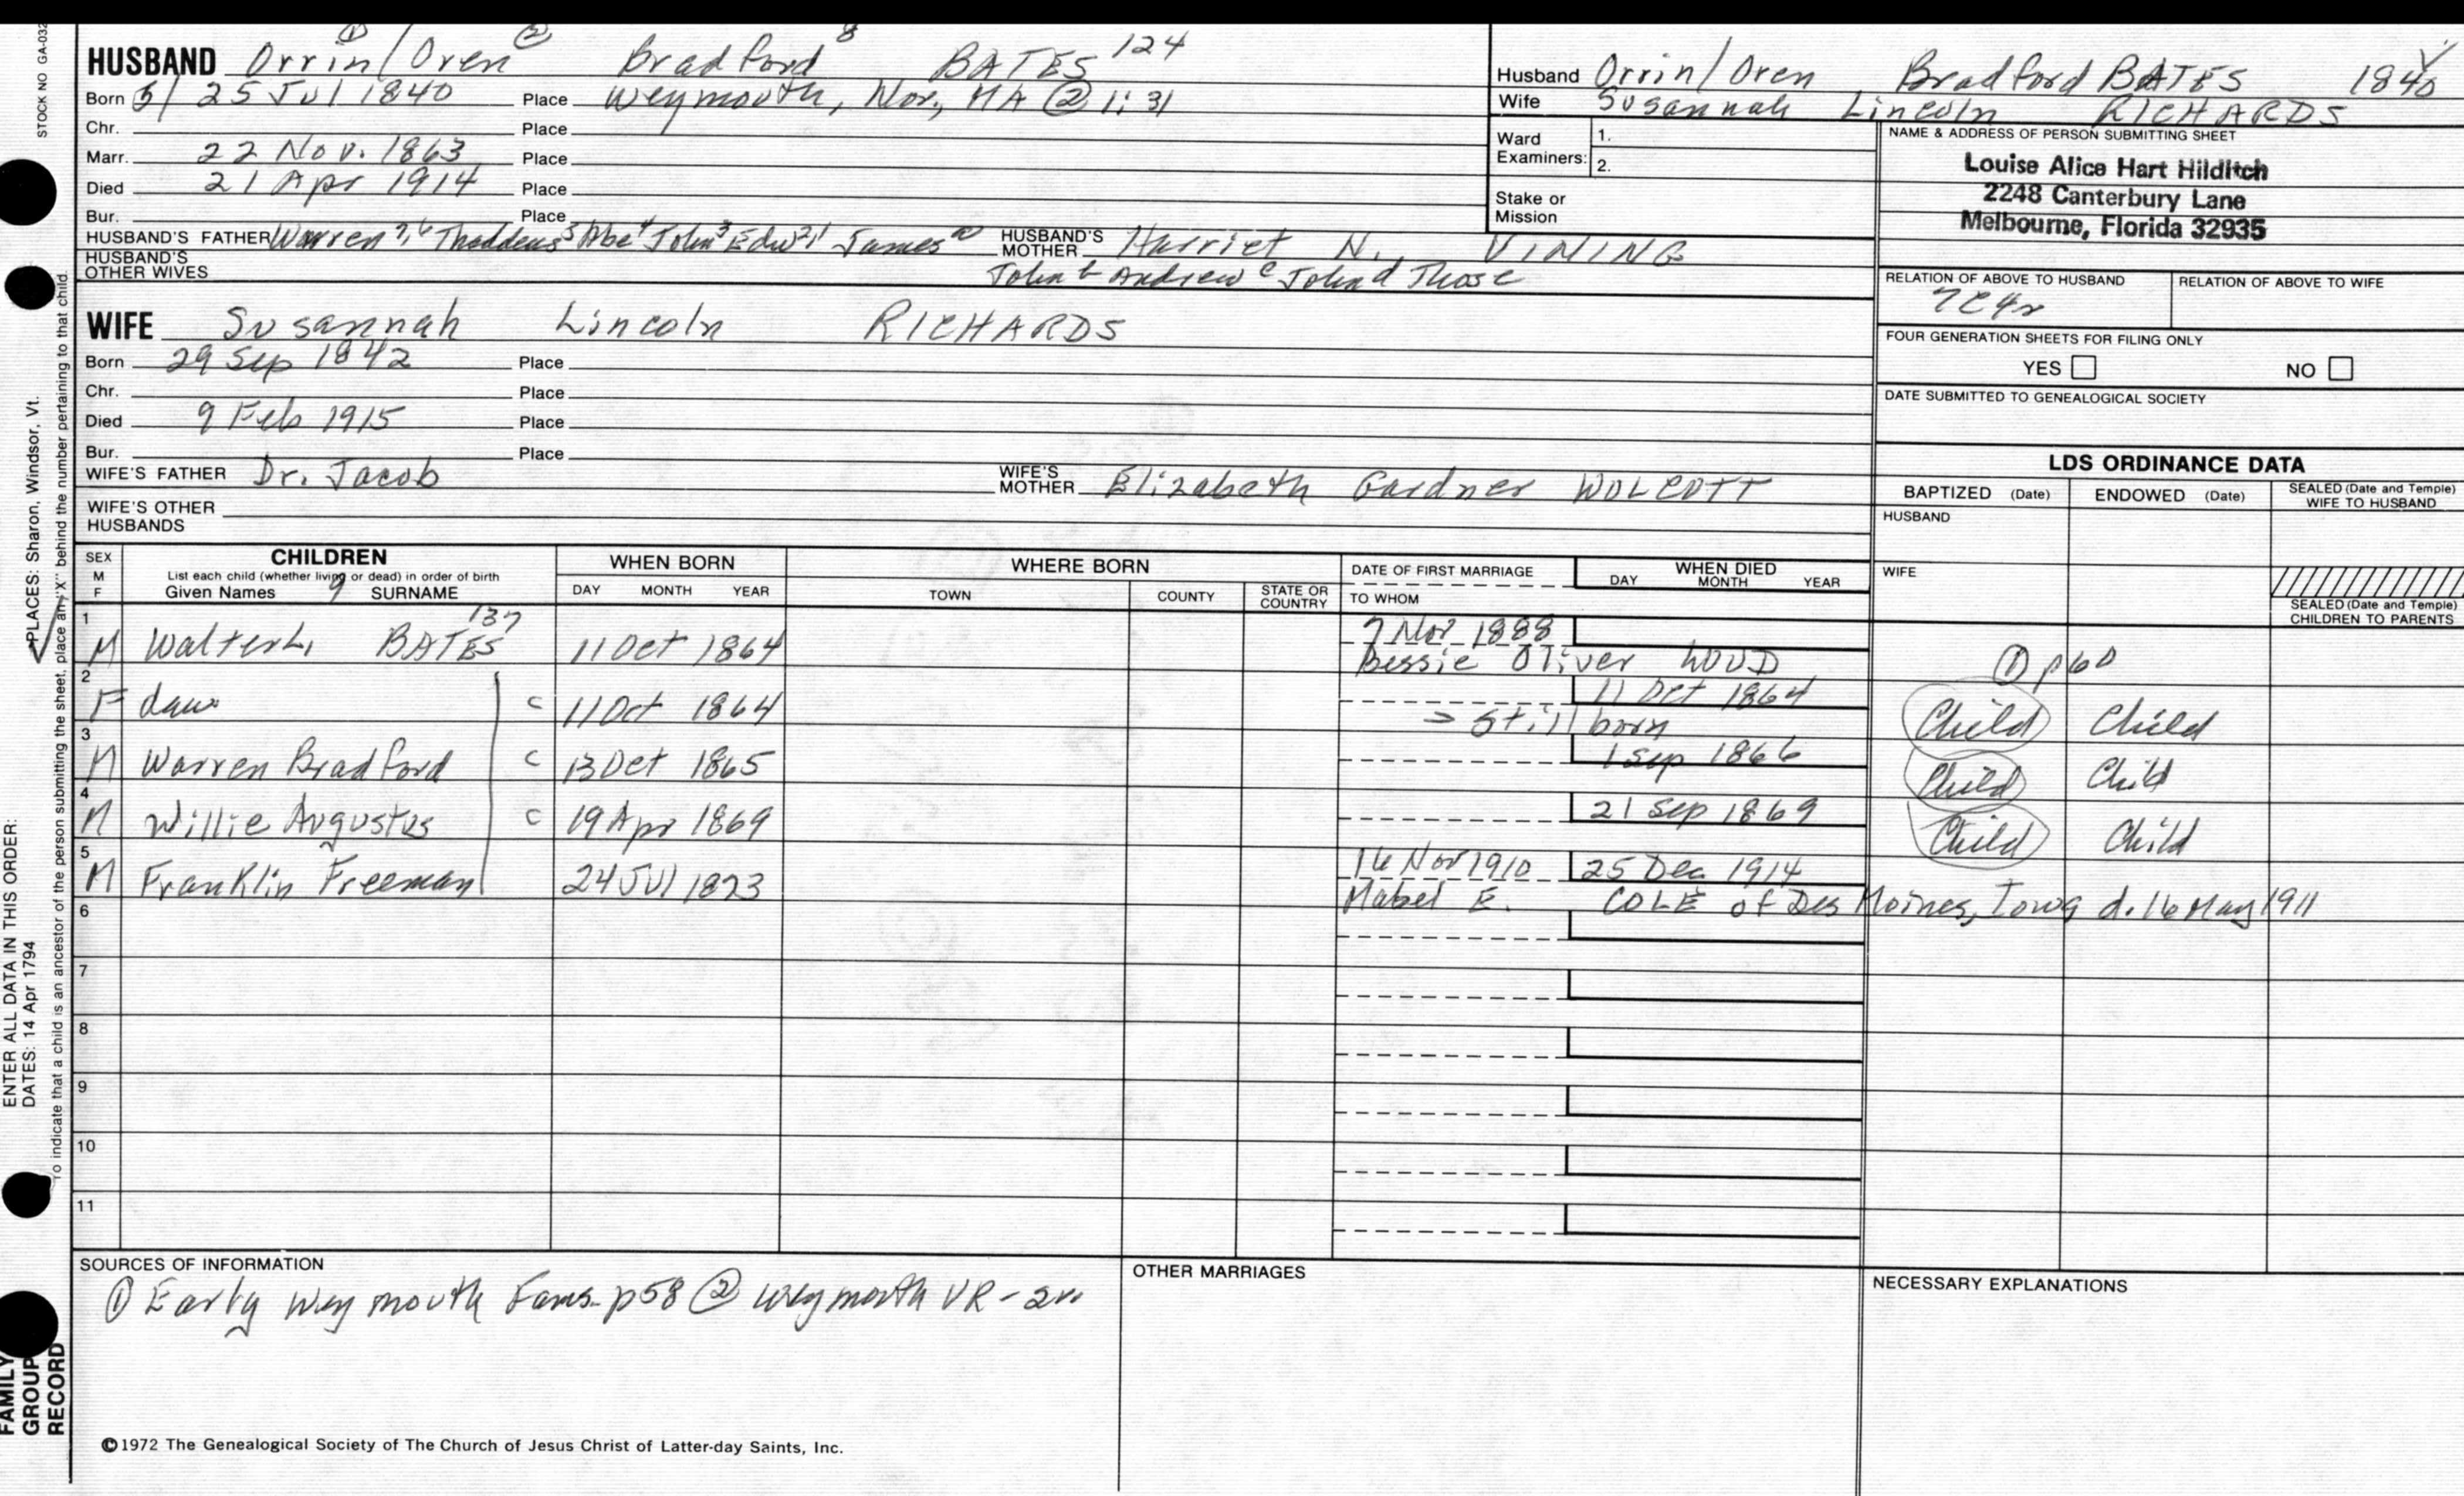 STOCK NO GA-032
HUSBAND Orrin/Oren Bradford BATES
① ② 8 124
Born 5/ 25 Jul 1840 Place Weymouth, Nor, MA ② 1:31
Chr. Place
Marr. 22 Nov. 1863 Place
Died 21 Apr 1914 Place
Bur. Place
HUSBAND'S FATHER Warren 7,6 Thaddeus 5 Abe 4 John 3 Edw 2,1 James a HUSBAND'S MOTHER Harriet N. VINING
HUSBAND'S OTHER WIVES John b Andrew c John d Thos e
WIFE Susannah Lincoln RICHARDS
Born 29 Sep 1842 Place
Chr. Place
Died 9 Feb 1915 Place
Bur. Place
WIFE'S FATHER Dr. Jacob WIFE'S MOTHER Elizabeth Gardner WOLCOTT
WIFE'S OTHER HUSBANDS
Husband Orrin/Oren Bradford BATES 1840
Wife Susannah Lincoln RICHARDS
Ward Examiners: 1.
2.
Stake or Mission
NAME & ADDRESS OF PERSON SUBMITTING SHEET
Louise Alice Hart Hilditch
2248 Canterbury Lane
Melbourne, Florida 32935
RELATION OF ABOVE TO HUSBAND RELATION OF ABOVE TO WIFE
7C4r
FOUR GENERATION SHEETS FOR FILING ONLY
YES NO
DATE SUBMITTED TO GENEALOGICAL SOCIETY
LDS ORDINANCE DATA
BAPTIZED (Date) ENDOWED (Date) SEALED (Date and Temple) WIFE TO HUSBAND
HUSBAND
WIFE
SEALED (Date and Temple) CHILDREN TO PARENTS
SEX M F CHILDREN WHEN BORN WHERE BORN DATE OF FIRST MARRIAGE WHEN DIED
List each child (whether living or dead) in order of birth
Given Names 9 SURNAME DAY MONTH YEAR TOWN COUNTY STATE OR COUNTRY TO WHOM DAY MONTH YEAR
1 M Walter L. BATES 137 11 Oct 1864 7 Nov 1888
Bessie Oliver WOOD ① p60
2 F dau C 11 Oct 1864 11 Oct 1864 Child Child
> Stillborn
3 M Warren Bradford C 13 Oct 1865 1 Sep 1866 Child Child
4 M Willie Augustus C 19 Apr 1869 21 Sep 1869 Child Child
5 M Franklin Freeman 24 Jul 1873 16 Nov 1910 25 Dec 1914
Mabel E. COLE of Des Moines, Iowa d. 16 May 1911
6
7
8
9
10
11
SOURCES OF INFORMATION
① Early Weymouth Fams. p58 ② Weymouth VR-
OTHER MARRIAGES
NECESSARY EXPLANATIONS
©1972 The Genealogical Society of The Church of Jesus Christ of Latter-day Saints, Inc.
ENTER ALL DATA IN THIS ORDER:
DATES: 14 Apr 1794
PLACES: Sharon, Windsor, Vt.
To indicate that a child is an ancestor of the person submitting the sheet, place an "X" behind the number pertaining to that child.
FAMILY
GROUP
RECORD